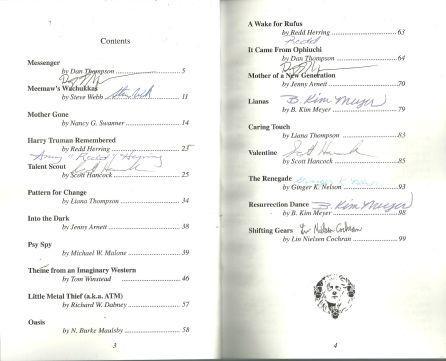 Contents
Messenger
by Dan Thompson ... 5
Meemaw's Wachukkas
by Steve Webb ... 11
Steve Webb
Mother Gone
by Nancy G. Swanner ... 14
Harry Truman Remembered
by Redd Herring ... 23
"Redd" Herring
Talent Scout
Scott Hancock
by Scott Hancock ... 25
Pattern for Change
by Liana Thompson ... 34
Into the Dark
by Jenny Arnett ... 38
Psy Spy
by Michael W. Malone ... 39
Theme from an Imaginary Western
by Tom Winstead ... 46
Little Metal Thief (a.k.a. ATM)
by Richard W. Dabney ... 57
Oasis
by N. Burke Maulsby ... 58
3
A Wake for Rufus
by Redd Herring ... 63
Redd
It Came From Ophiuchi
by Dan Thompson ... 64
Mother of a New Generation
by Jenny Arnett ... 70
Lianas
B. Kim Meyer
by B. Kim Meyer ... 79
Caring Touch
by Liana Thompson ... 83
Valentine
Scott Hancock
by Scott Hancock ... 85
The Renegade
Ginger K. Nelson
by Ginger K. Nelson ... 93
Resurrection Dance
B. Kim Meyer
by B. Kim Meyer ... 98
Shifting Gears
Lin Nielsen Cochran
by Lin Nielsen Cochran ... 99
4